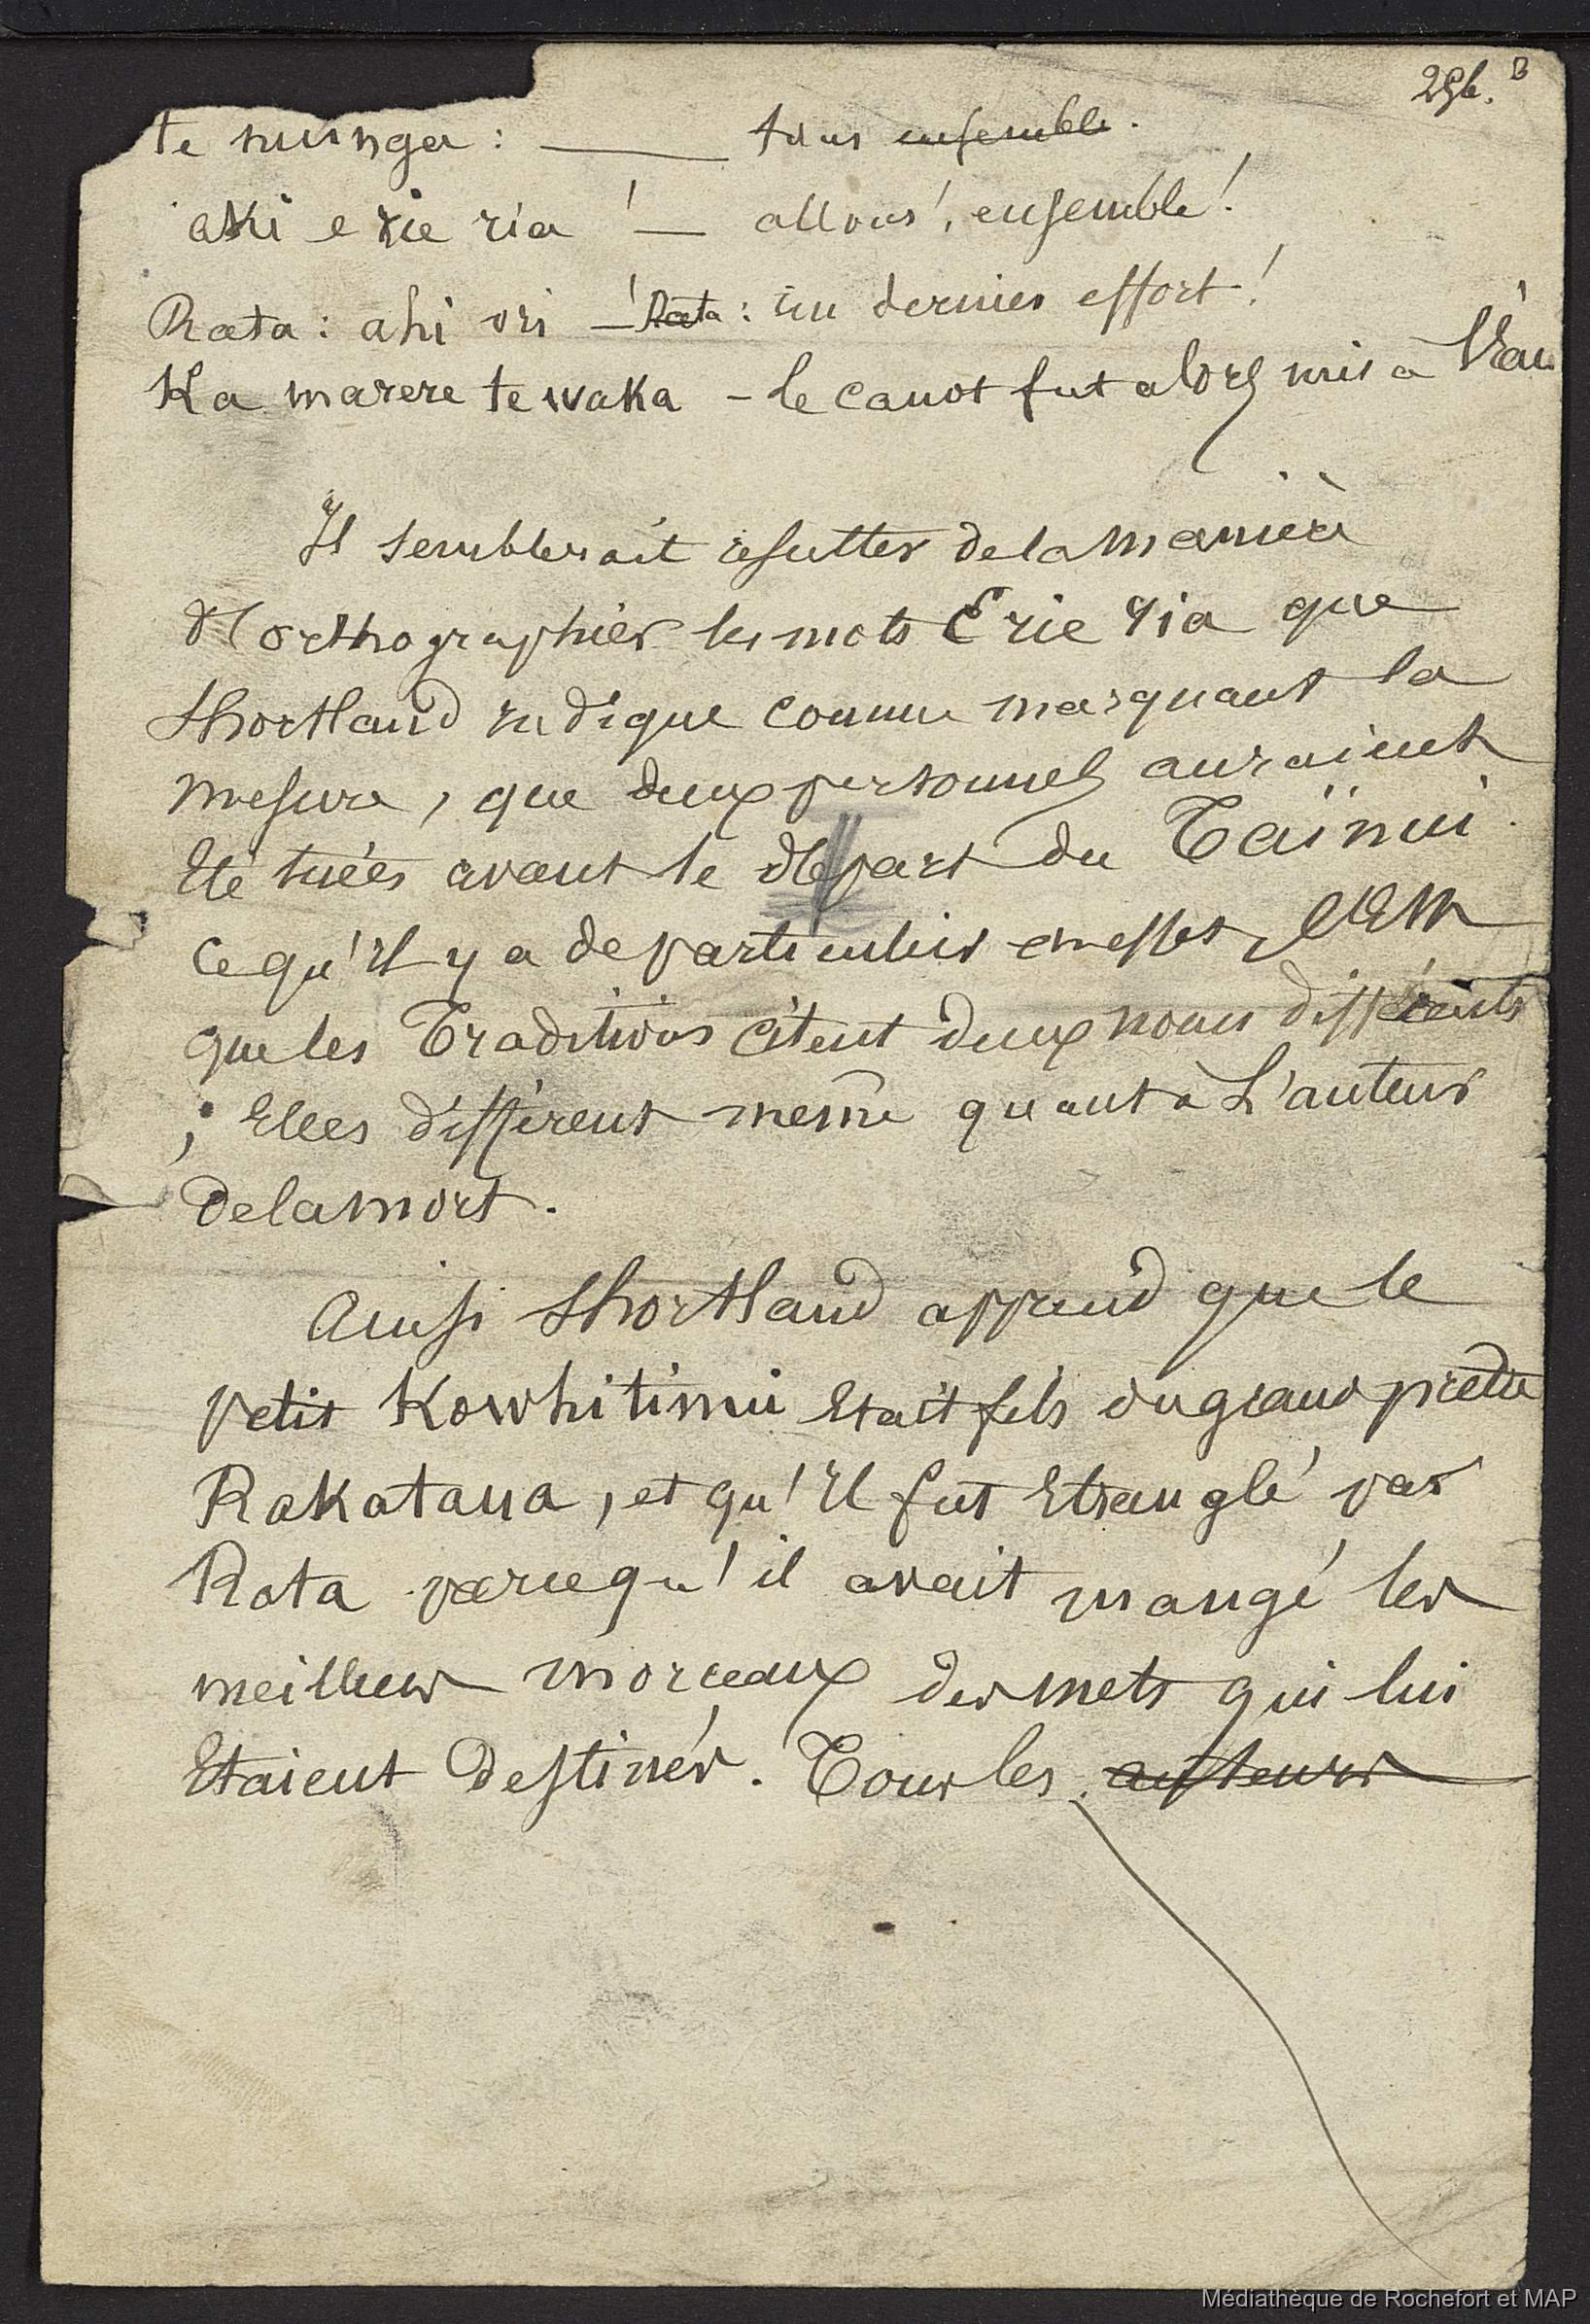 296. B
te nuinga : — tous ensemble.
aki e rie ria ! — allons !, ensemble !
Rata : ahi ori — ! Rata : un dernier effort !
Ka marere te waka – le canot fut alors mis à l'Eau
Il semblerait résulter de la manière
d'orthographier les mots E rie ria que
Shortland indique comme marquant la
mesure, que deux personnes auraient
Eté tuées avant le départ du Taïnui.
Ce qu'il y a de particulier en effet, c'Est
que les Traditions citent deux noms différents
; Elles diffèrent même quant à L'auteur
de la mort.
Ainsi Shortland apprend que le
petit Kowhitinui Etait fils du grand prêtre
Rakataua, et qu'Il fut Etranglé par
Rata parce qu'il avait mangé les
meilleurs morceaux des mets qui lui
Etaient destinés. Tous les auteurs
Médiathèque de Rochefort et MAP